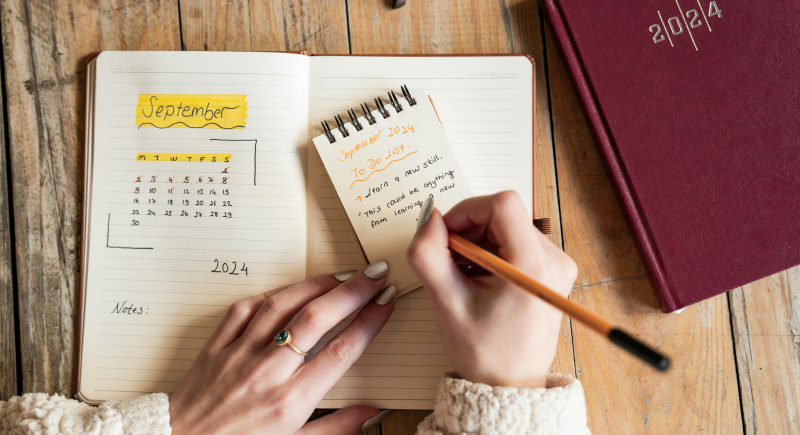 September
M T W T F S S
1
2 3 4 5 6 7 8
9 10 11 12 13 14 15
16 17 18 19 20 21 22
23 24 25 26 27 28 29
30
2024
Notes:
September 2024
To Do List:
→ Learn a new skill.
"This could be anything
from learning a new
2024